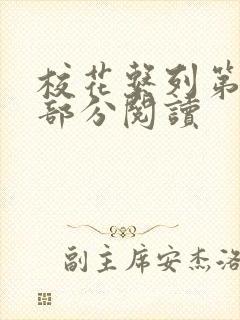 校花系列第
部分閱讀
副主席安杰洛